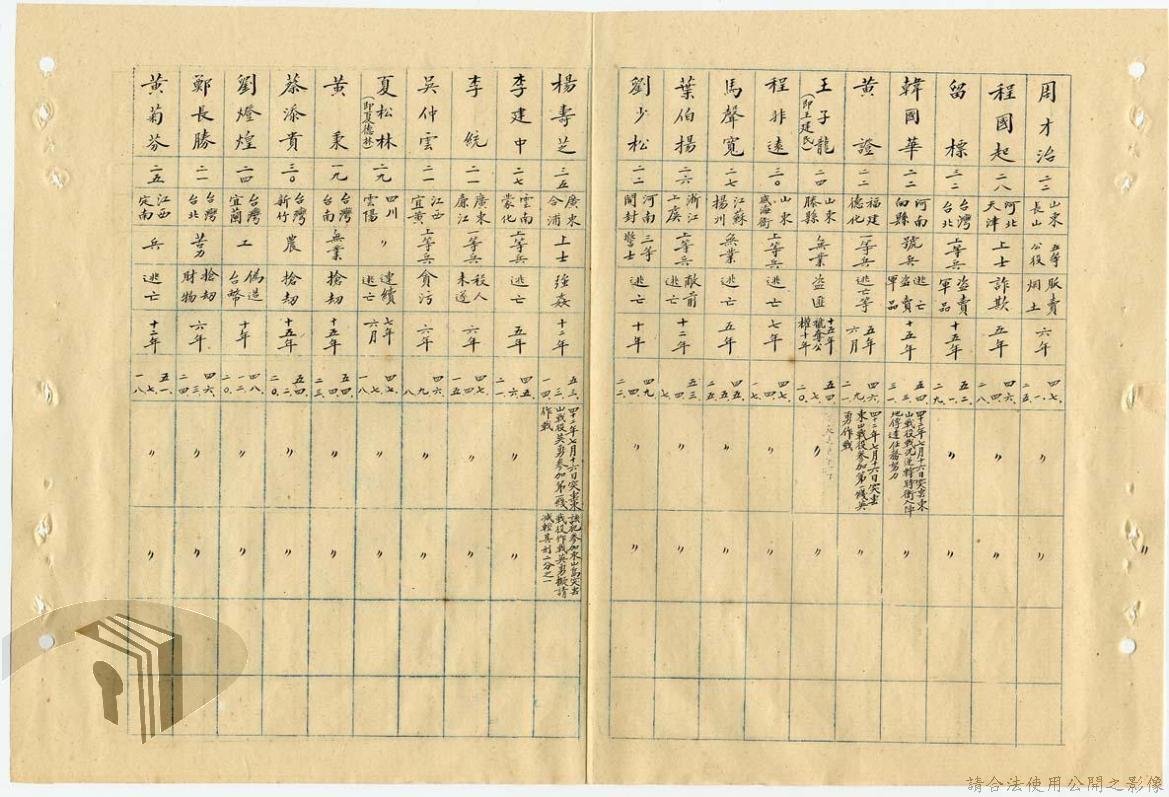 周才治 二二 山東長山 五等公役 販賣烟土 六年 四七、一、五 〃 〃
程國起 二八 河北天津 上士 詐欺 五年 四六、四、八 〃 〃
留標 三二 台灣台北 上等兵 盜賣軍品 十五年 五二、一、九 〃 〃
韓國華 二二 河南 號兵 逃亡盜賣軍品 十五年 四十二年七月十六日突出東山戰役 〃
黃證 二二 福建德化 一等兵 逃亡等 五年六月 四六、九、二一 四十二年七月十六日突出東山戰役參加第一綫英勇作戰 〃
王子龍(即王建民) 二四 山東滕縣 無業 盜匪 十五年褫奪公權十年 五四、二〇 〃 〃
程非遠 三〇 山東威海衛 上等兵 逃亡 七年 〃 〃
馬聲寬 二七 江蘇揚州 無業 逃亡 五年 〃 〃
葉伯揚 二六 浙江上虞 上等兵 敵前逃亡 十二年 〃 〃
劉少松 二二 河南開封 三等警士 逃亡 十年 〃 〃
楊壽芝 三五 廣東合浦 上士 強姦 十二年 五三、三、一四 四十二年七月十六日突出東山戰役英勇參加第一綫作戰 該犯參加東山島突出戰役作戰英勇擬請減輕其刑二分之一
李建中 二七 雲南蒙化 上等兵 逃亡 五年 〃 〃
李統 二一 廣東廉江 一等兵 殺人未遂 六年 〃 〃
吳仲雲 二一 江西宜黃 上等兵 貪污 六年 〃 〃
夏松林(即夏德林) 二九 四川雲陽 〃 連續逃亡 七年六月 四七、七、一八 〃 〃
黃秉 一九 台灣台南 無業 搶劫 十五年 五四、四、二三 〃 〃
蔡添貴 三〇 台灣新竹 農 搶劫 十五年 五四、二、二〇 〃 〃
劉燈煌 二四 台灣宜蘭 工 偽造台幣 十年 四八、一二、二〇 〃 〃
鄭長勝 二一 台灣台北 苦力 搶劫財物 六年 四六、三、二四 〃 〃
黃菊芬 二五 江西定南 兵 逃亡 十二年 五一、七、一八 〃 〃
〃
請合法使用公開之影像